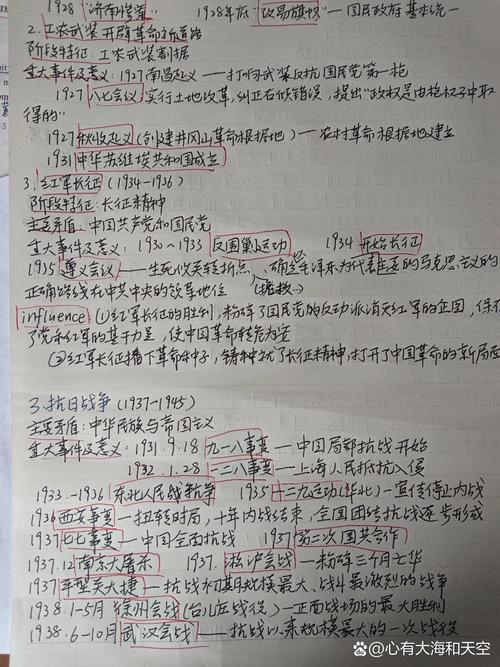 1928 "济南惨案" 1928年底 "改易旗帜" — 国民政府基本统一
2. 工农武装开辟革命新道路
阶段特征: 工农武装割据
重大事件及意义: 1927 南昌起义 —— 打响武装反抗国民党第一枪
1927 八七会议 实行土地改革, 纠正右倾错误, 提出"政权是由枪杆子中取
得的"
1927 秋收起义 (创建井冈山革命根据地) — 农村革命根据地建立
1931 中华苏维埃共和国成立
3. 红军长征 (1934-1936)
阶段特征: 长征精神
主要矛盾: 中国共产党和国民党
重大事件及意义: 1930~1933 反围剿运动 1934 开始长征
1935 遵义会议 —— 生死攸关转折点、确立毛泽东为代表的马克思主义的
正确路线在中共中央的领导地位
influence: ①红军长征的胜利, 粉碎了国民党的反动派消灭红军的企图, 保存
了党和红军的基干力量, 使中国革命转危为安
②红军长征播下革命种子, 铸就了长征精神, 打开了中国革命的新局面
3. 抗日战争 (1937-1945)
主要矛盾: 中华民族与帝国主义
重大事件及意义: 1931.9.18 九一八事变 — 中国局部抗战开始
1932.1.28 一二八事变 — 上海人民抵抗入侵
1933.-1936 东北人民战抗争 1935 一二九运动(华北) — 宣传停止内战
1936 西安事变 — 扭转时局, 十年内战结束, 全国团结抗战逐步形成
1937 七七事变 — 中国全面抗战 1937 第二次国共合作
1937.12 南京大屠杀 1937. 淞沪会战 — 粉碎三个月亡华
1937 平型关大捷 — 抗战初期规模最大、战斗最激烈的战争
1938.1-5月 徐州会战 (台儿庄战役) — 正面战场的最大胜利
1938.6-10月 武汉会战 —— 抗战以来规模最大的一次战役
@心有大海和天空